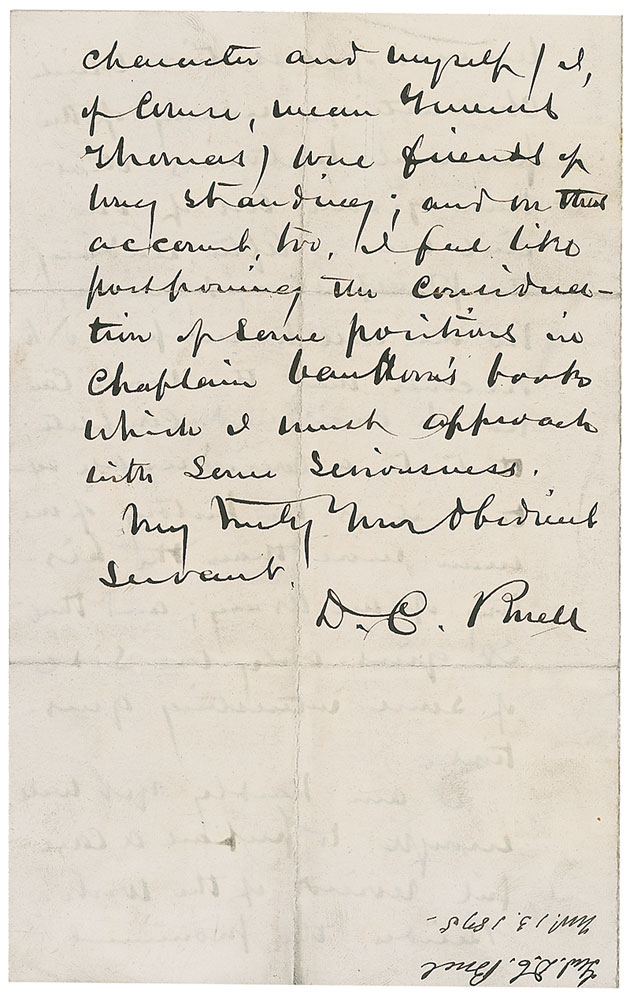 character and myself (I,
of course, mean General
Thomas) were friends of
long standing; and on that
account, too, I feel like
postponing the considera-
tion of some positions in
Chaplain Van Horne's book
which I must approach
with some seriousness.
Very truly Your Obedient
Servant,
D. C. Buell
Genl. D. C. Buell
13. 1875-